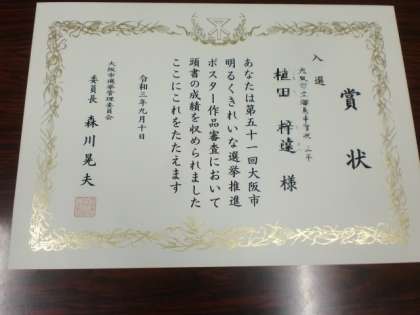 賞状
入選
植田 梓達 様
あなたは第五十一回大阪市
明るくきれいな選挙推進
ポスター作品審査において
頭書の成績を収められました
ここにこれをたたえます
令和三年九月十日
大阪市選挙管理委員会
委員長 森川晃夫